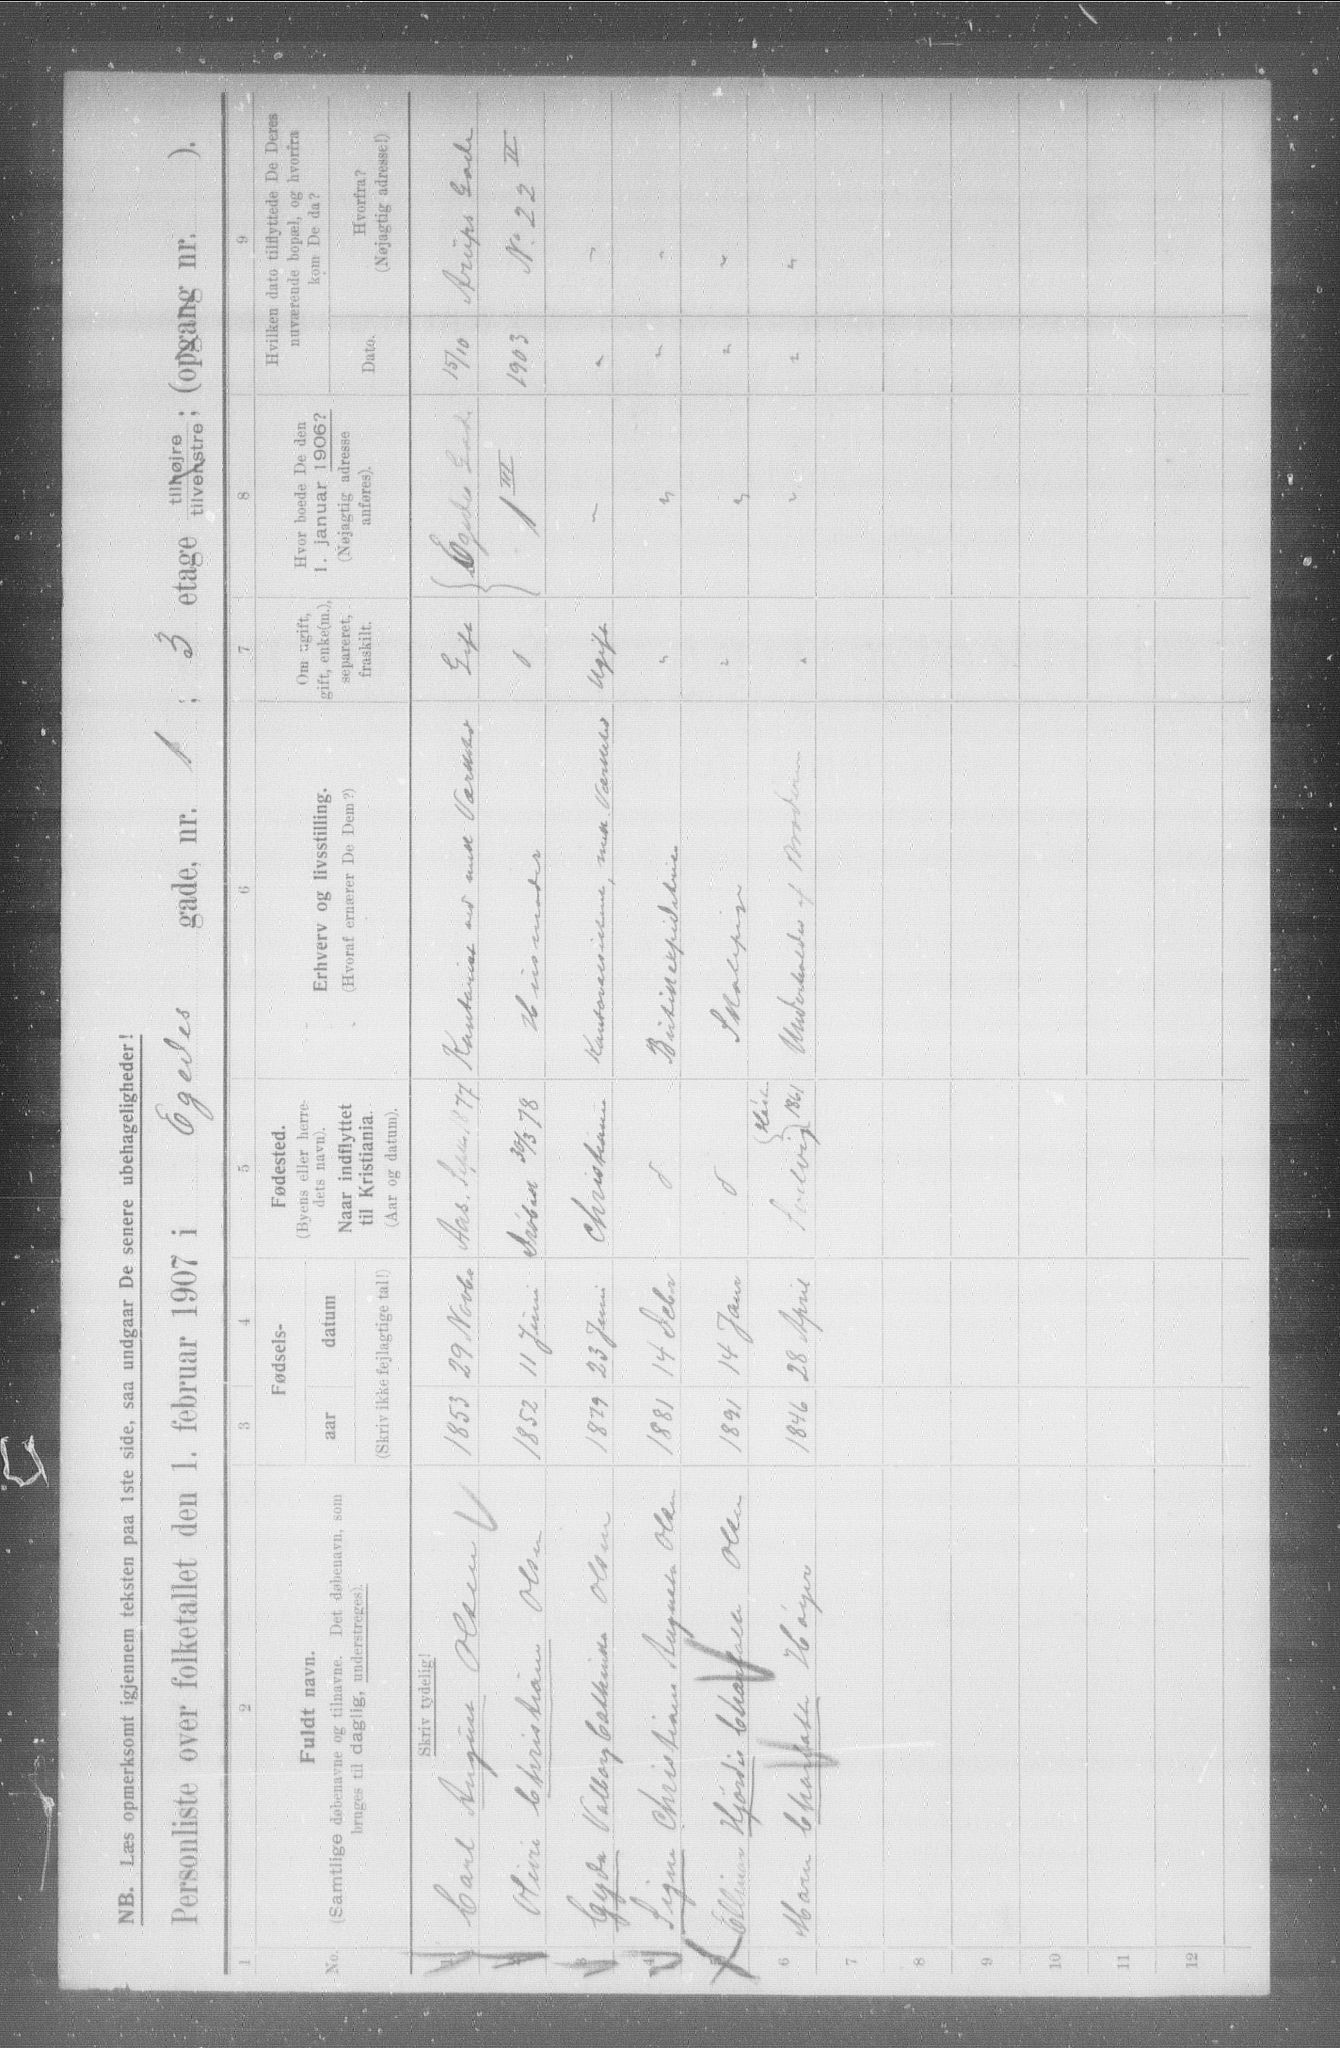 NB. Læs opmerksomt igjennem teksten paa 1ste side, saa undgaar De senere ubehageligheder!
Personliste over folketallet den 1. februar 1907 i Egedes gade, nr. 1 ; 3 etage tilhøjre tilvenstre ; (opgang nr. ).
1 2 3 4 5 6 7 8 9
No.
Fuldt navn.
(Samtlige døbenavne og tilnavne. Det døbenavn, som
bruges til daglig, understreges).
Fødsels-
aar datum
(Skriv ikke fejlagtige tal!)
Fødested.
(Byens eller herre-
dets navn).
Naar indflyttet
til Kristiania.
(Aar og datum).
Erhverv og livsstilling.
(Hvoraf ernærer De Dem?)
Om ugift,
gift, enke(m.),
separeret,
fraskilt.
Hvor boede De den
1. januar 1906?
(Nøjagtig adresse
anføres).
Hvilken dato tilflyttede De Deres
nuværende bopæl, og hvorfra
kom De da?
Dato.
Hvorfra?
(Nøjagtig adresse!)
Skriv tydelig!
1 Carl August Olsen 1853 29 Novbr Aas. 77 Gift Egedes Gade 15/10 Arups Gade
2 Christiane Olsen 1852 11 Juni Drøbak 30/3 78 Husmoder 1 III 1903 No. 22 II
3 Gyda Valborg Cathinka Olsen 1879 23 Juni Christiania Ugift " " "
4 Signe Christiane Augusta Olsen 1881 14 Febr " " " " "
5 Ellinor Hjørdis Charlotte Olsen 1891 14 Janr " Skolepige " " " "
6 Maren Charlotte Høyer 1846 28 April 1861 Underholdes af " " " "
7
8
9
10
11
12